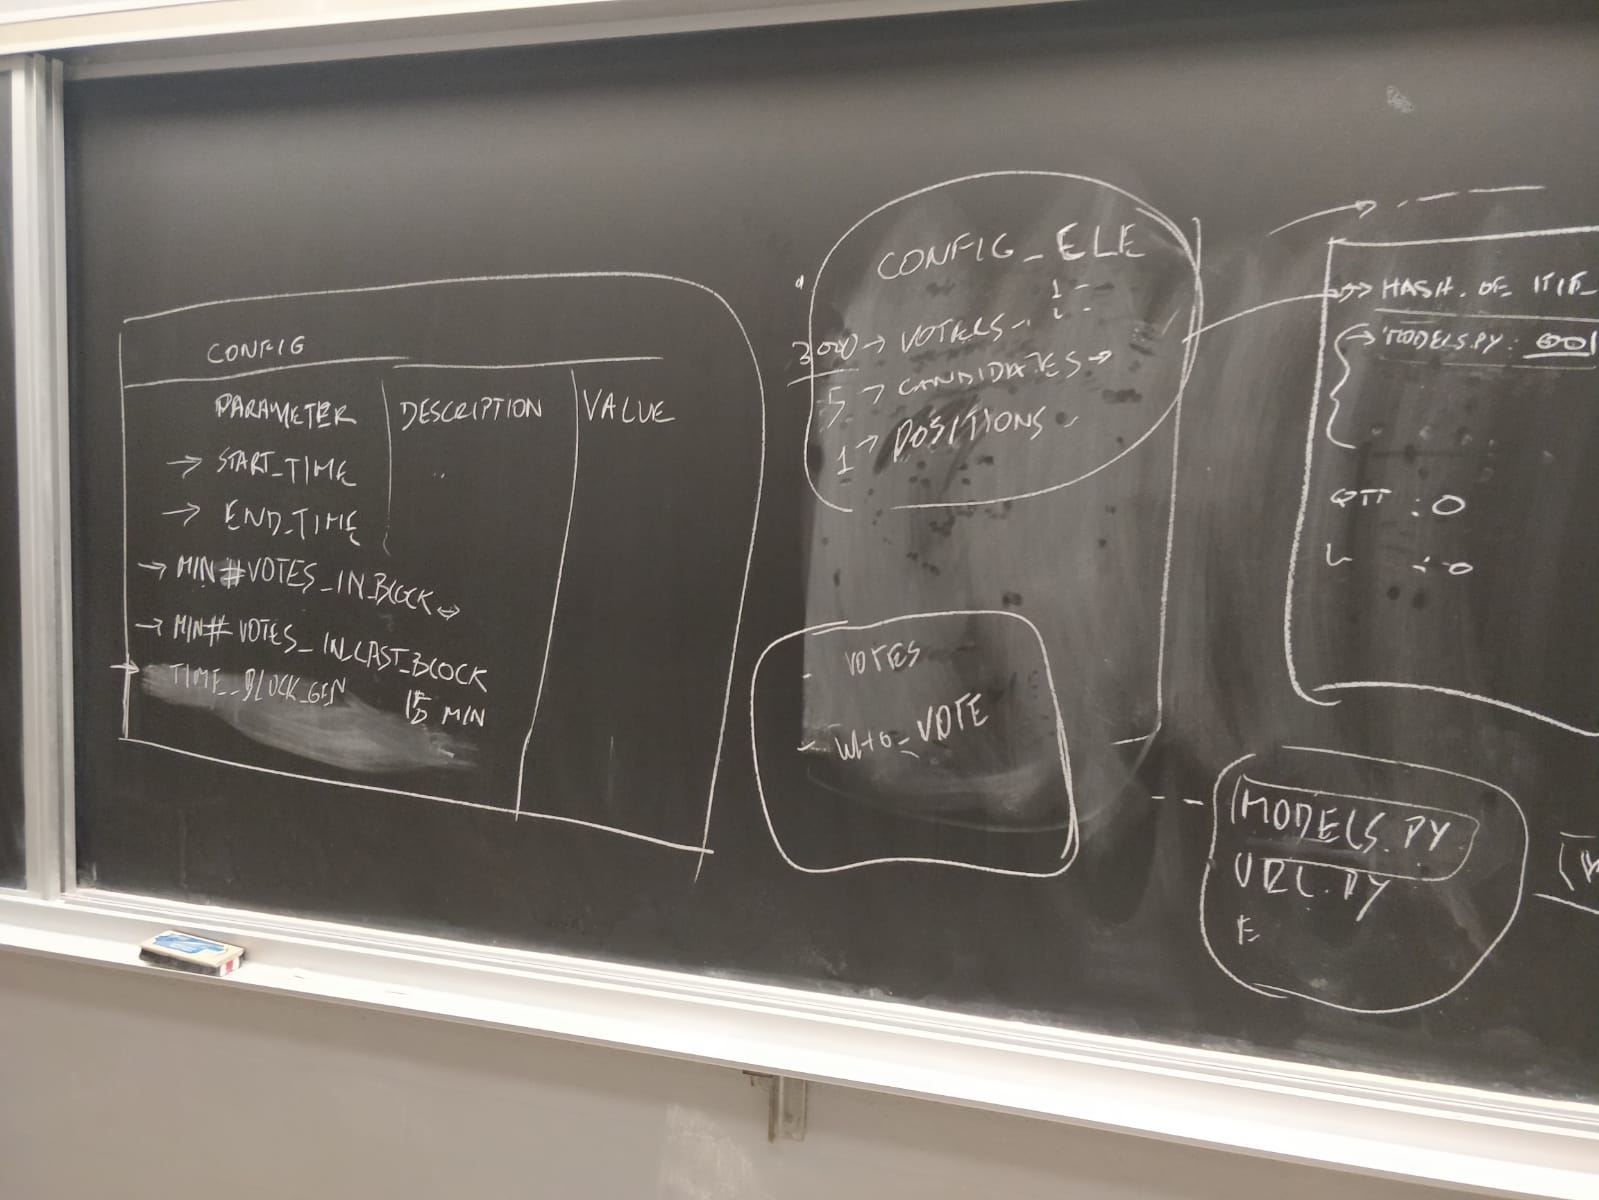 CONFIG
PARAMETER DESCRIPTION VALUE
→ START_TIME
→ END_TIME
→ MIN#VOTES_IN_BLOCK
→ MIN# VOTES_IN_LAST_BLOCK
→ TIME_BLOCK_GEN
MIN
CONFIG_ELE
→ VOTERS
5 → CANDIDATES →
1 → POSITIONS
- VOTES
- WHO_VOTE
MODELS.PY
URL.PY
→ HASH OF
→ MODELS.PY: 001
: 0
: 0